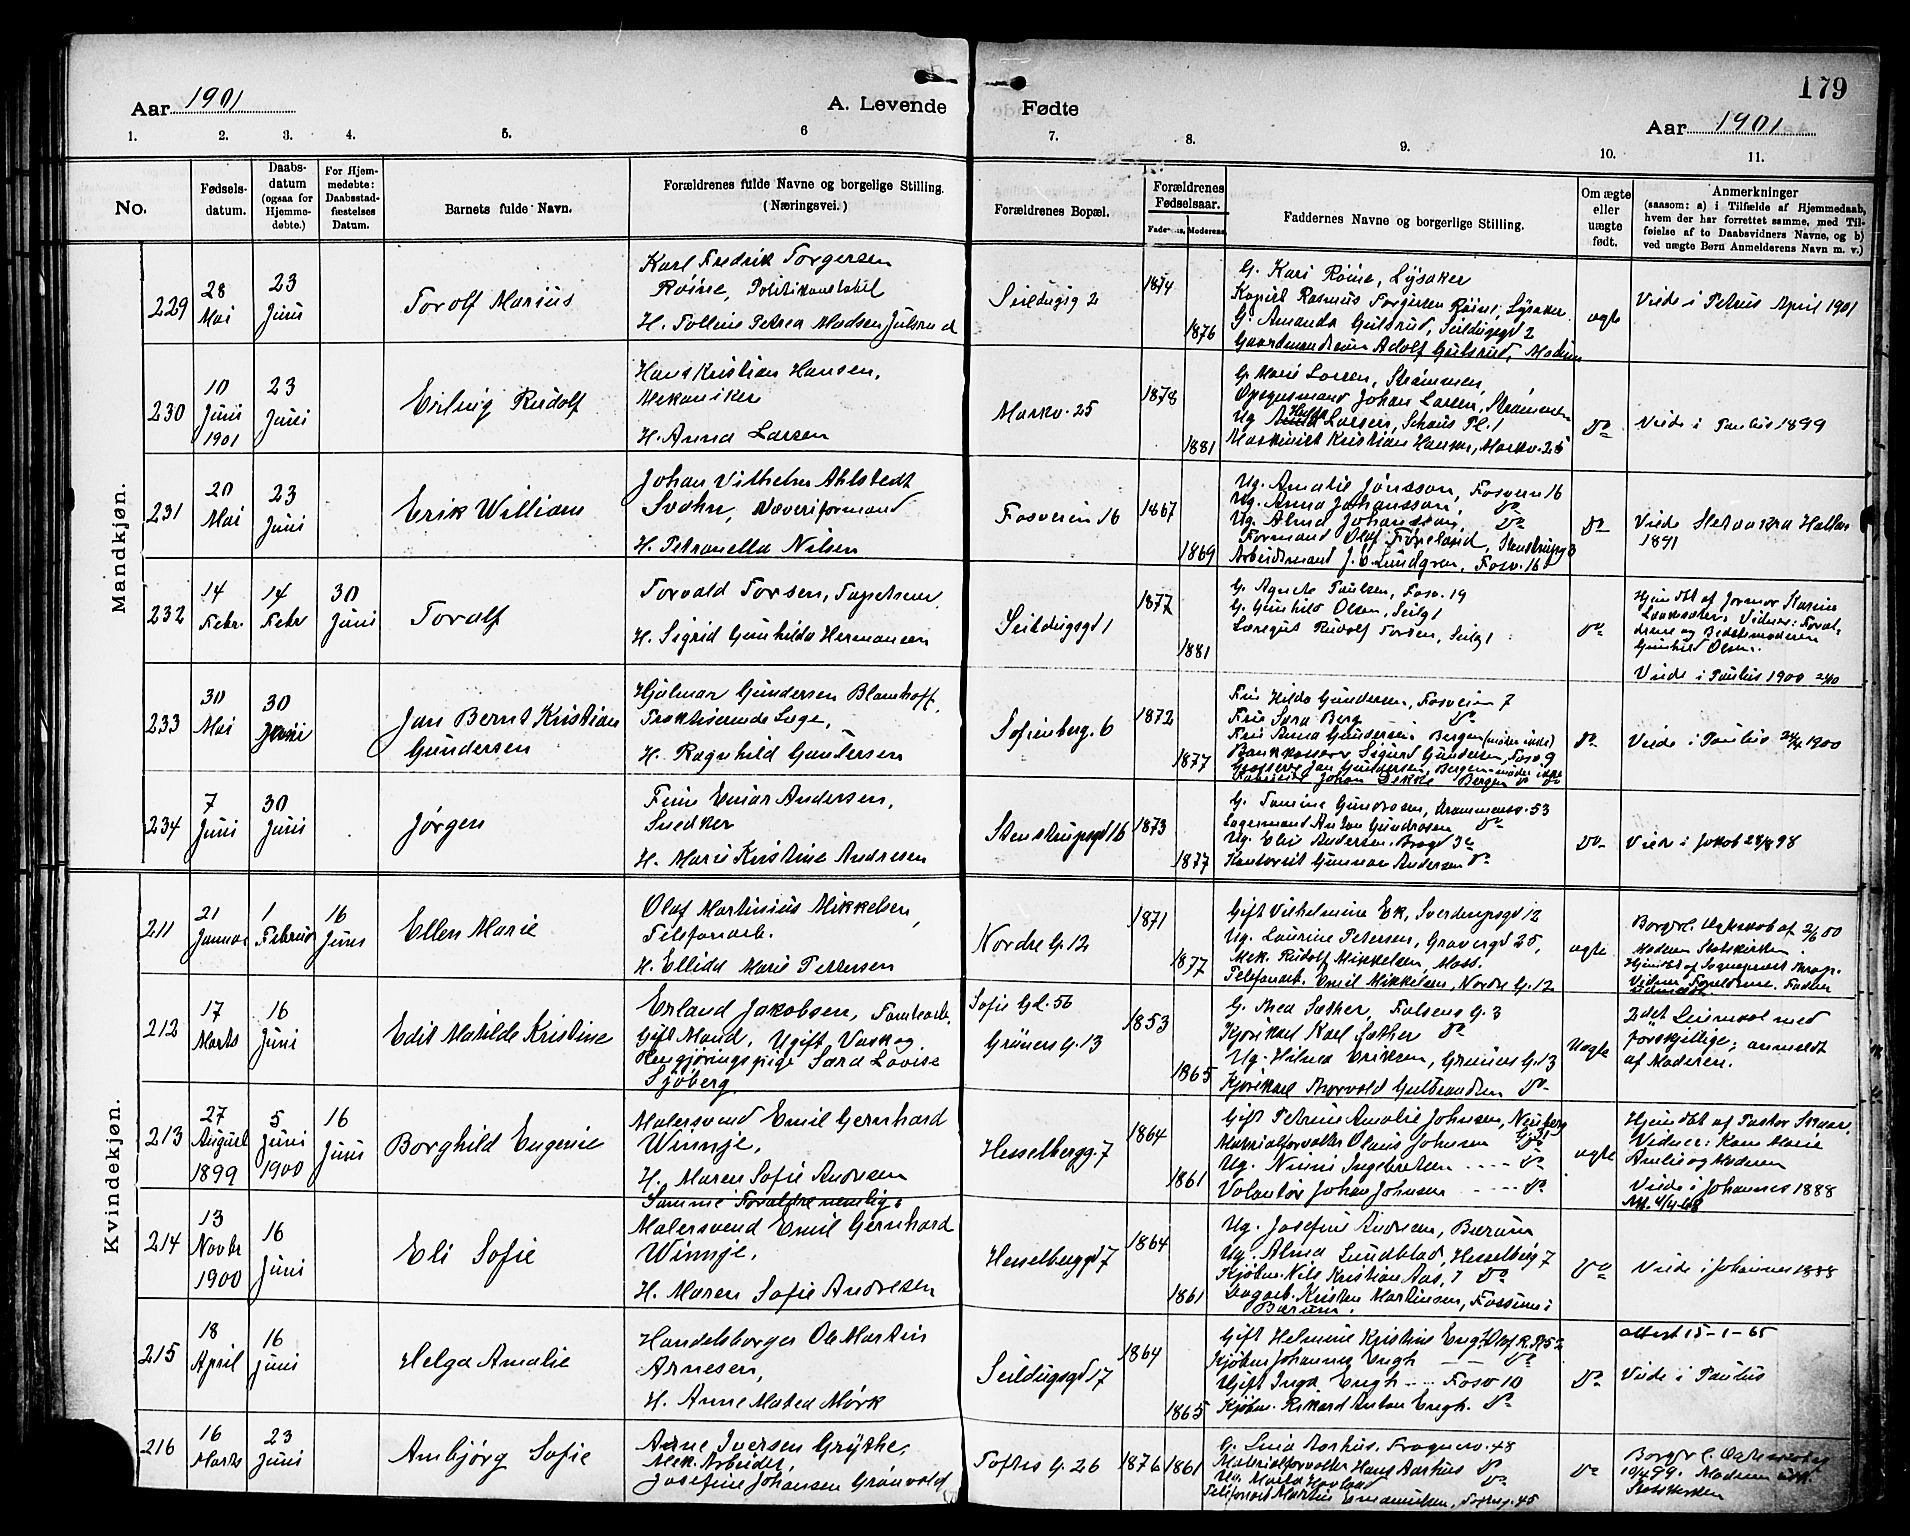 Aar 1901
A. Levende
Fødte
179
Aar 1901
1.
2.
3.
4.
5.
6
7.
8.
9.
10.
11.
No.
Fødsels-
datum.
Daabs-
datum
(ogsaa for
Hjemme-
døbte.)
For Hjem-
medøbte:
Daabsstad-
fæstelses
Datum.
Barnets fulde Navn.
Forældrenes fulde Navne og borgelige Stilling.
(Næringsvei.)
Forældrenes Bopæl.
Forældrenes
Fødselsaar.
Faderens, Moderens.
Faddernes Navne og borgerlige Stilling.
Om ægte
eller
uægte
født.
Anmerkninger
(saasom: a) i Tilfælde af Hjemmedaab,
hvem der har forrettet samme, med Til-
føielse af to Daabsvidners Navne, og b)
ved uægte Børn Anmelderens Navn m. v.)
Mandkjøn.
229
28
Mai
23
Juni
Torolf Marius
Karl Fredrik Torgersen
Røine, Politikonstabel
H. Tolline Petrea Madsen Julsrud
Seildugsg 2
1874
1876
G. Kari Røine, Lysaker
Rasmus Torgersen Røine, Lysaker
G. Amanda Gulsrud, Seildugsgd 2
Gaardmandssøn Adolf Gulsrud, Modum
ægte
Viede i Petrus April 1901
230
10
Juni
1901
23
Juni
Erling Rudolf
Hans Kristian Hansen,
Mekaniker
H. Anna Larsen
Markv. 25
1878
1881
G. Marie Larsen, Strømmen,
Opsynsmand Johan Larsen, Strømmen
Ug. Hulda Larsen, Schous Pl. 1
Maskinist Kristian Hansen, Markv. 25
Do
Viede i Paulus 1899
231
20
Mai
23
Juni
Erik William
Johan Vilhelm Ahlstedt
Svahn, Væveriformand
H. Petronella Nilsen
Fosveien 16
1867
1869
Ug. Amalie Jönsson, Fosveien 16
Ug. Anna Johansson, Do
Ug. Alma Johansson, Do
Formand Olaf Föreland, Stenstrupg 3
Arbeidsmand J. O. Lundgren, Fosv. 16
Do
Viede
1891
232
14
Febr.
14
Febr
30
Juni
Toralf
Torvald Torsen, Tapetserer
H. Sigrid Gunhilda Hermansen
Seildugsgd 1
1877
1881
G. Agnete Paulsen, Fosv. 19
G. Gunhild Olsen, Seilg 1
Læregut Rudolf Torsen, Seilg 1
Do
Hjemdbt af Jormor Karine
Vidner: Foræl-
drene og Bedstemoderen
Gunhild Olsen.
Viede i Paulus 1900
233
30
Mai
30
Juni
Jan Bernt Kristian
Gundersen
Hjalmar Gundersen Blomhoff,
Praktiserende Læge,
H. Ragnhild Gundersen
Sofienberg. 6
1872
1877
Frue Hilda Gundersen, Fosveien 7
Frue Sara Berg Do
Frue Anna Gundersen, Bergen (møder ikke)
Bankkasserer Sigurd Gundersen, Fosv 9
Grosserer Jan Gundersen, Bergen møder ikke
Johan Bergen Do
Do
Viede i Paulus 24/4 1900
234
7
Juni
30
Juni
Jørgen
Finn Einar Andersen,
Snedker
H. Marie Kristine Andresen
Stenstrupsgd 16
1873
1877
G. Tomine Gundrosen, Drammensv. 53
Lagermand Anton Gundrosen Do
Ug. Elise Andersen, Brogd 3c
Kontorist Gunnar Andersen Do
Do
Viede i Jakob 28/8 98
Kvindekjøn.
211
21
Januar
1
Februar
16
Juni
Ellen Marie
Olaf Martinius Mikkelsen,
Telefonarb.
H. Ellida Marie Pettersen
Nordre G. 12
1871
1877
Gift Vilhelmine Ek, Sverdrupsgd 12
Ug. Laurine Petersen, Gravergd 25,
Mek. Rudolf Mikkelsen, Moss.
Telefonarb. Emil Mikkelsen, Nordre G. 12
ægte
Borgerl. Ægteskab af 2/6 00
Moderen Statskirken
Hjemdbt af Sognepræst
Vidner Forældrene. Faderen
212
17
Marts
16
Juni
Edit Matilde Kristine
Erland Jakobsen, Tomtearb.
Gift Mand, Ugift Vask og
Rengjøringspige Sara Lovise
Sjöberg
Sofie Gd. 56
Grüners G. 13
1853
1865
G. Thea Sæther, Falsens G. 3
Kjørekarl Karl Sæther Do
Ug. Hilma Eriksen, Grünes G. 13
Kjørekarl Thorvald Gulbrandsen Do
Uægte
2det Leiermaal med
forskjellige; anmeldt
af Moderen.
213
27
August
1899
5
Juni
1900
16
Juni
Borghild Eugenie
Malersvend Emil Gernhard
Winnje,
H. Maren Sofie Andresen
Hesselbergg. 7
1864
1861
Gift Petrine Amalie Johnsen, Neuberg
Materialforvalter Olaus Johnsen Do
Ug. Ninni Ingebretsen Do
Volontør Johan Johnsen Do
ægte
Hjemdbt af Pastor
Vidner: Karen Marie
og Moderen
Viede i Johannes 1888
214
13
Novbr
1900
16
Juni
Eli Sofie
Samme Forældre nemlig:
Malersvend Emil Gernhard
Winnje,
H. Maren Sofie Andresen
Hesselberggd 7
1864
1861
Ug. Josefine Andresen, Bærum
Ug. Alma Lundblad, Hesselbergg 7
Kjøbm. Nils Kristian Aas, 7 Do
Dagarb. Kristen Martinsen, Fossum i
Bærum.
Do
Viede i Johannes 1888
215
18
April
16
Juni
Helga Amalie
Handelsborger Ole Martin
Arnesen,
H. Anne Matea Mørk
Seildugsgd 17
1864
1865
Gift Helmine Kristine Engh, Olaf R. Pl 52
Kjøbm Johannes Engh Do
Gift Inga Engh Fosv 10
Kjøbm. Rikard Anton Engh. Do
Do
attest 15-1-65
Viede i Paulus
216
16
Marts
23
Juni
Ambjørg Sofie
Arne Iversen Grythe,
Mek. Arbeider,
Josefine Johansen Grønvold
Toftes G. 26
1876
1861
G. Lina Aarhus, Frognerv. 48
Materialforvalter Hans Aarhus Do
Ug. Marta Do
Telefonarb Martin Toftesg. 45
Do
Borgerl. Ægteskab
10/4 99. Moderen
Statskirken